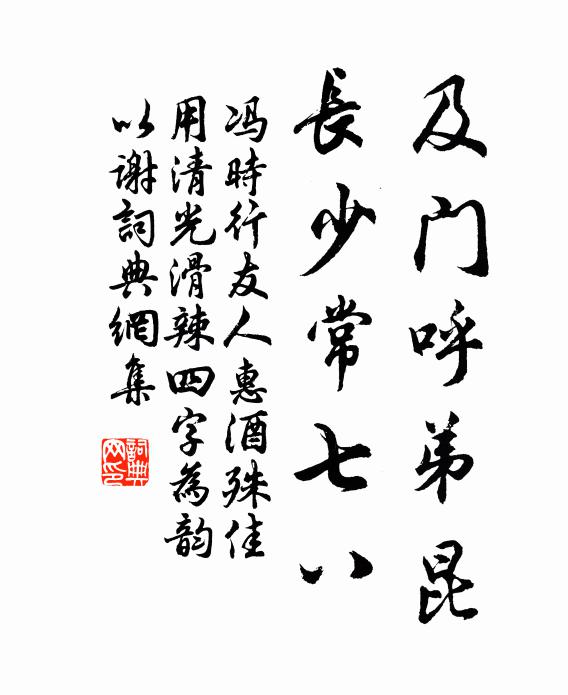 及门呼弟昆
長少常七八
冯時行友人惠酒殊佳
用清光滑辣四字為韵
以谢詞典網集
詞典网印